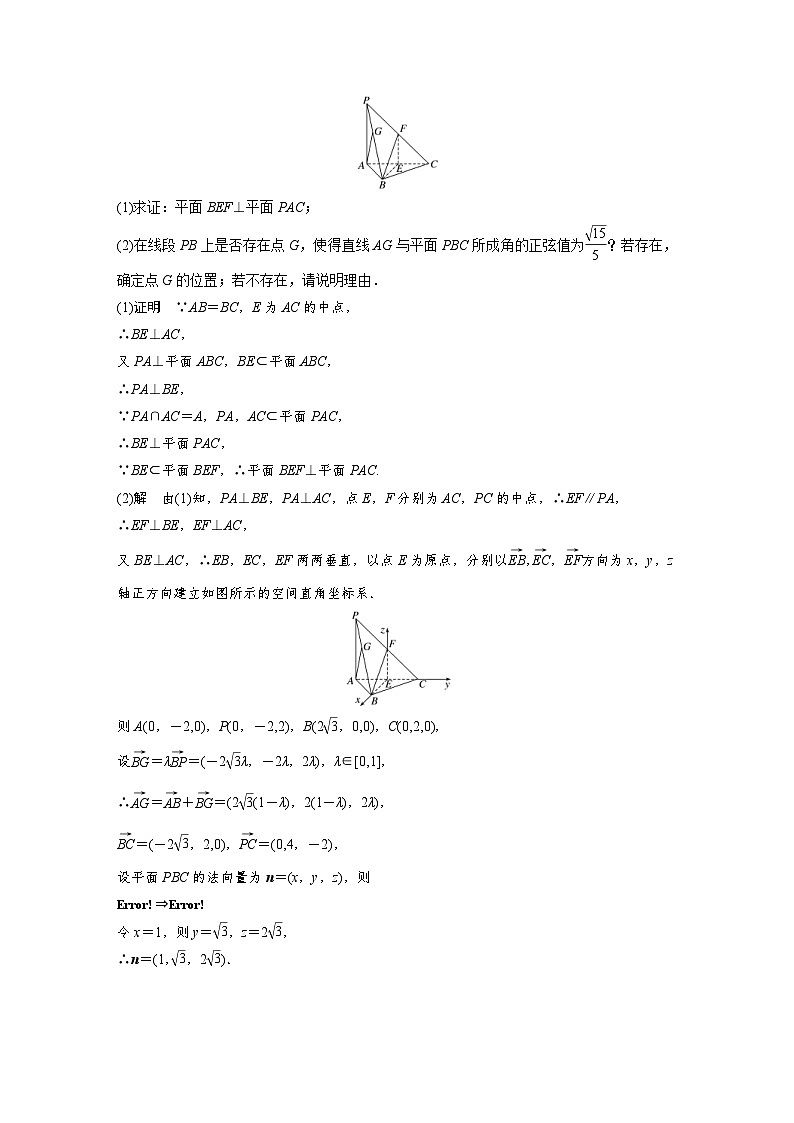 P
G
F
A
E
C
B
(1)求证：平面BEF⊥平面PAC；
(2)在线段PB上是否存在点G，使得直线AG与平面PBC所成角的正弦值为√15/5？若存在，
确定点G的位置；若不存在，请说明理由．
(1)证明　∵AB＝BC，E为AC的中点，
∴BE⊥AC，
又PA⊥平面ABC，BE⊂平面ABC，
∴PA⊥BE，
∵PA∩AC＝A，PA，AC⊂平面PAC，
∴BE⊥平面PAC，
∵BE⊂平面BEF，∴平面BEF⊥平面PAC.
(2)解　由(1)知，PA⊥BE，PA⊥AC，点E，F分别为AC，PC的中点，∴EF∥PA，
∴EF⊥BE，EF⊥AC，
又BE⊥AC，∴EB，EC，EF两两垂直，以点E为原点，分别以→EB,→EC，→EF方向为x，y，z
轴正方向建立如图所示的空间直角坐标系．
P
z
F
G
A
E
C
y
x
B
则A(0，－2,0)，P(0，－2,2)，B(2√3，0,0)，C(0,2,0)，
设→BG＝λ→BP＝(－2√3λ，－2λ，2λ)，λ∈[0,1]，
∴→AG＝→AB＋→BG＝(2√3(1－λ)，2(1－λ)，2λ)，
→BC＝(－2√3，2,0)，→PC＝(0,4，－2)，
设平面PBC的法向量为n＝(x，y，z)，则
Error! ⇒Error!
令x＝1，则y＝√3，z＝2√3，
∴n＝(1，√3，2√3)．